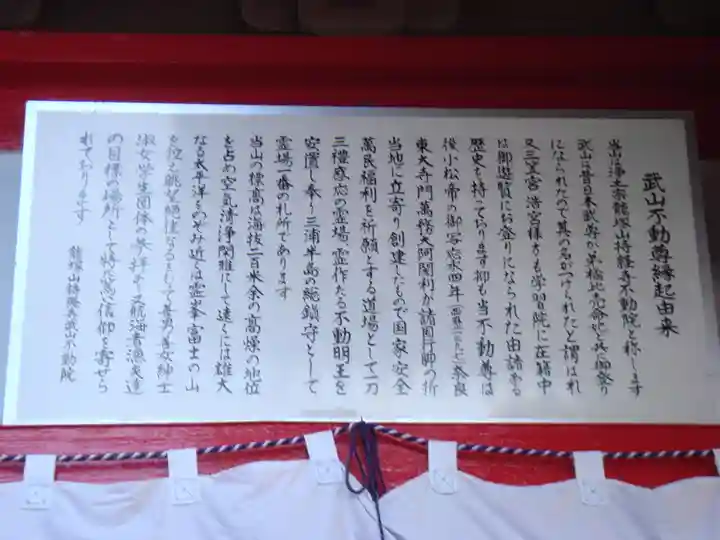 武山不動尊縁起由来
当山は浄土宗龍塚山持経寺不動院と称します
武山は昔日本武尊が弟橘比売命と共に御登り
になられたので其の名がつけられたと謂はれ
又三笠宮 浩宮様方も学習院に在籍中
は御遊覧にお登りになられた由諸ある
歴史を持っております抑も当不動尊は
後小松帝の御写応永四年(西一三九七)奈良
東大寺門萬務大阿闍利が諸国行脚の折
当地に立寄り創建したもので国家安全
萬民福利を祈願とする道場として一刀
三禮感応の霊場、霊作たる不動明王を
安置し奉り三浦半島の総鎮守として
霊場一番の札所であります
当山の標高は海抜二百米余の高燥の地位
を占め空気清浄閑雅にして遠くには雄大
なる太平洋をのぞみ近くは霊峯富士の山
を控へ眺望絶佳なるとして善男善女紳士
淑女学生団体の参拝そして航海者漁夫達
の目標の場所として特に高い信仰を寄せら
れております
龍塚山持経寺武山不動院